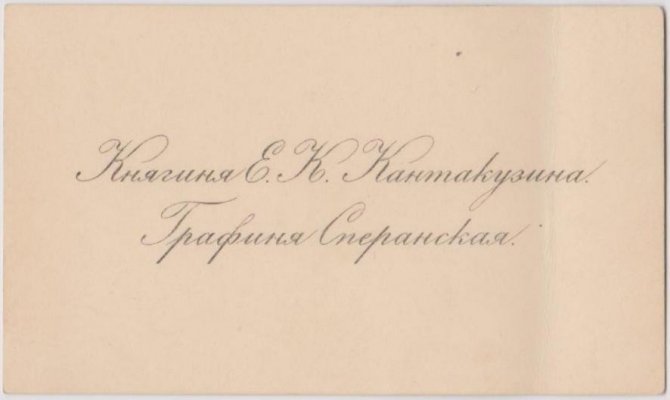 Княгиня Е. К. Кантакузина.
Графиня Сперанская.